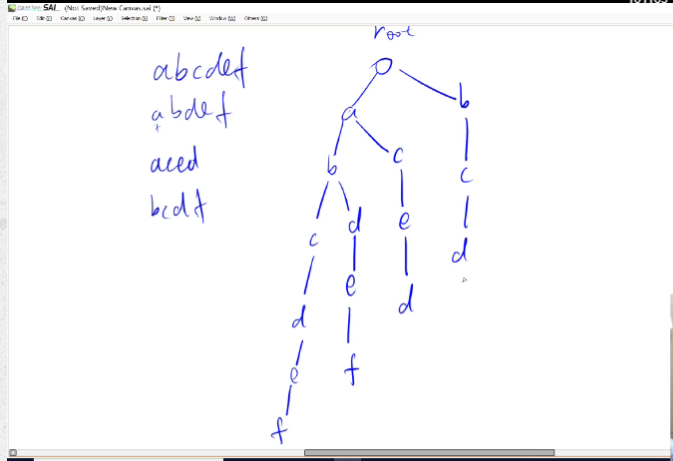 SAI (Not Saved)New Canvas.sai (*)
File Edit Canvas Layer Selection Filter View Window Others
root
abcdef
abdef
aced
bcdf
b
a
c
b
c
d
e
c
d
e
d
d
e
f
f